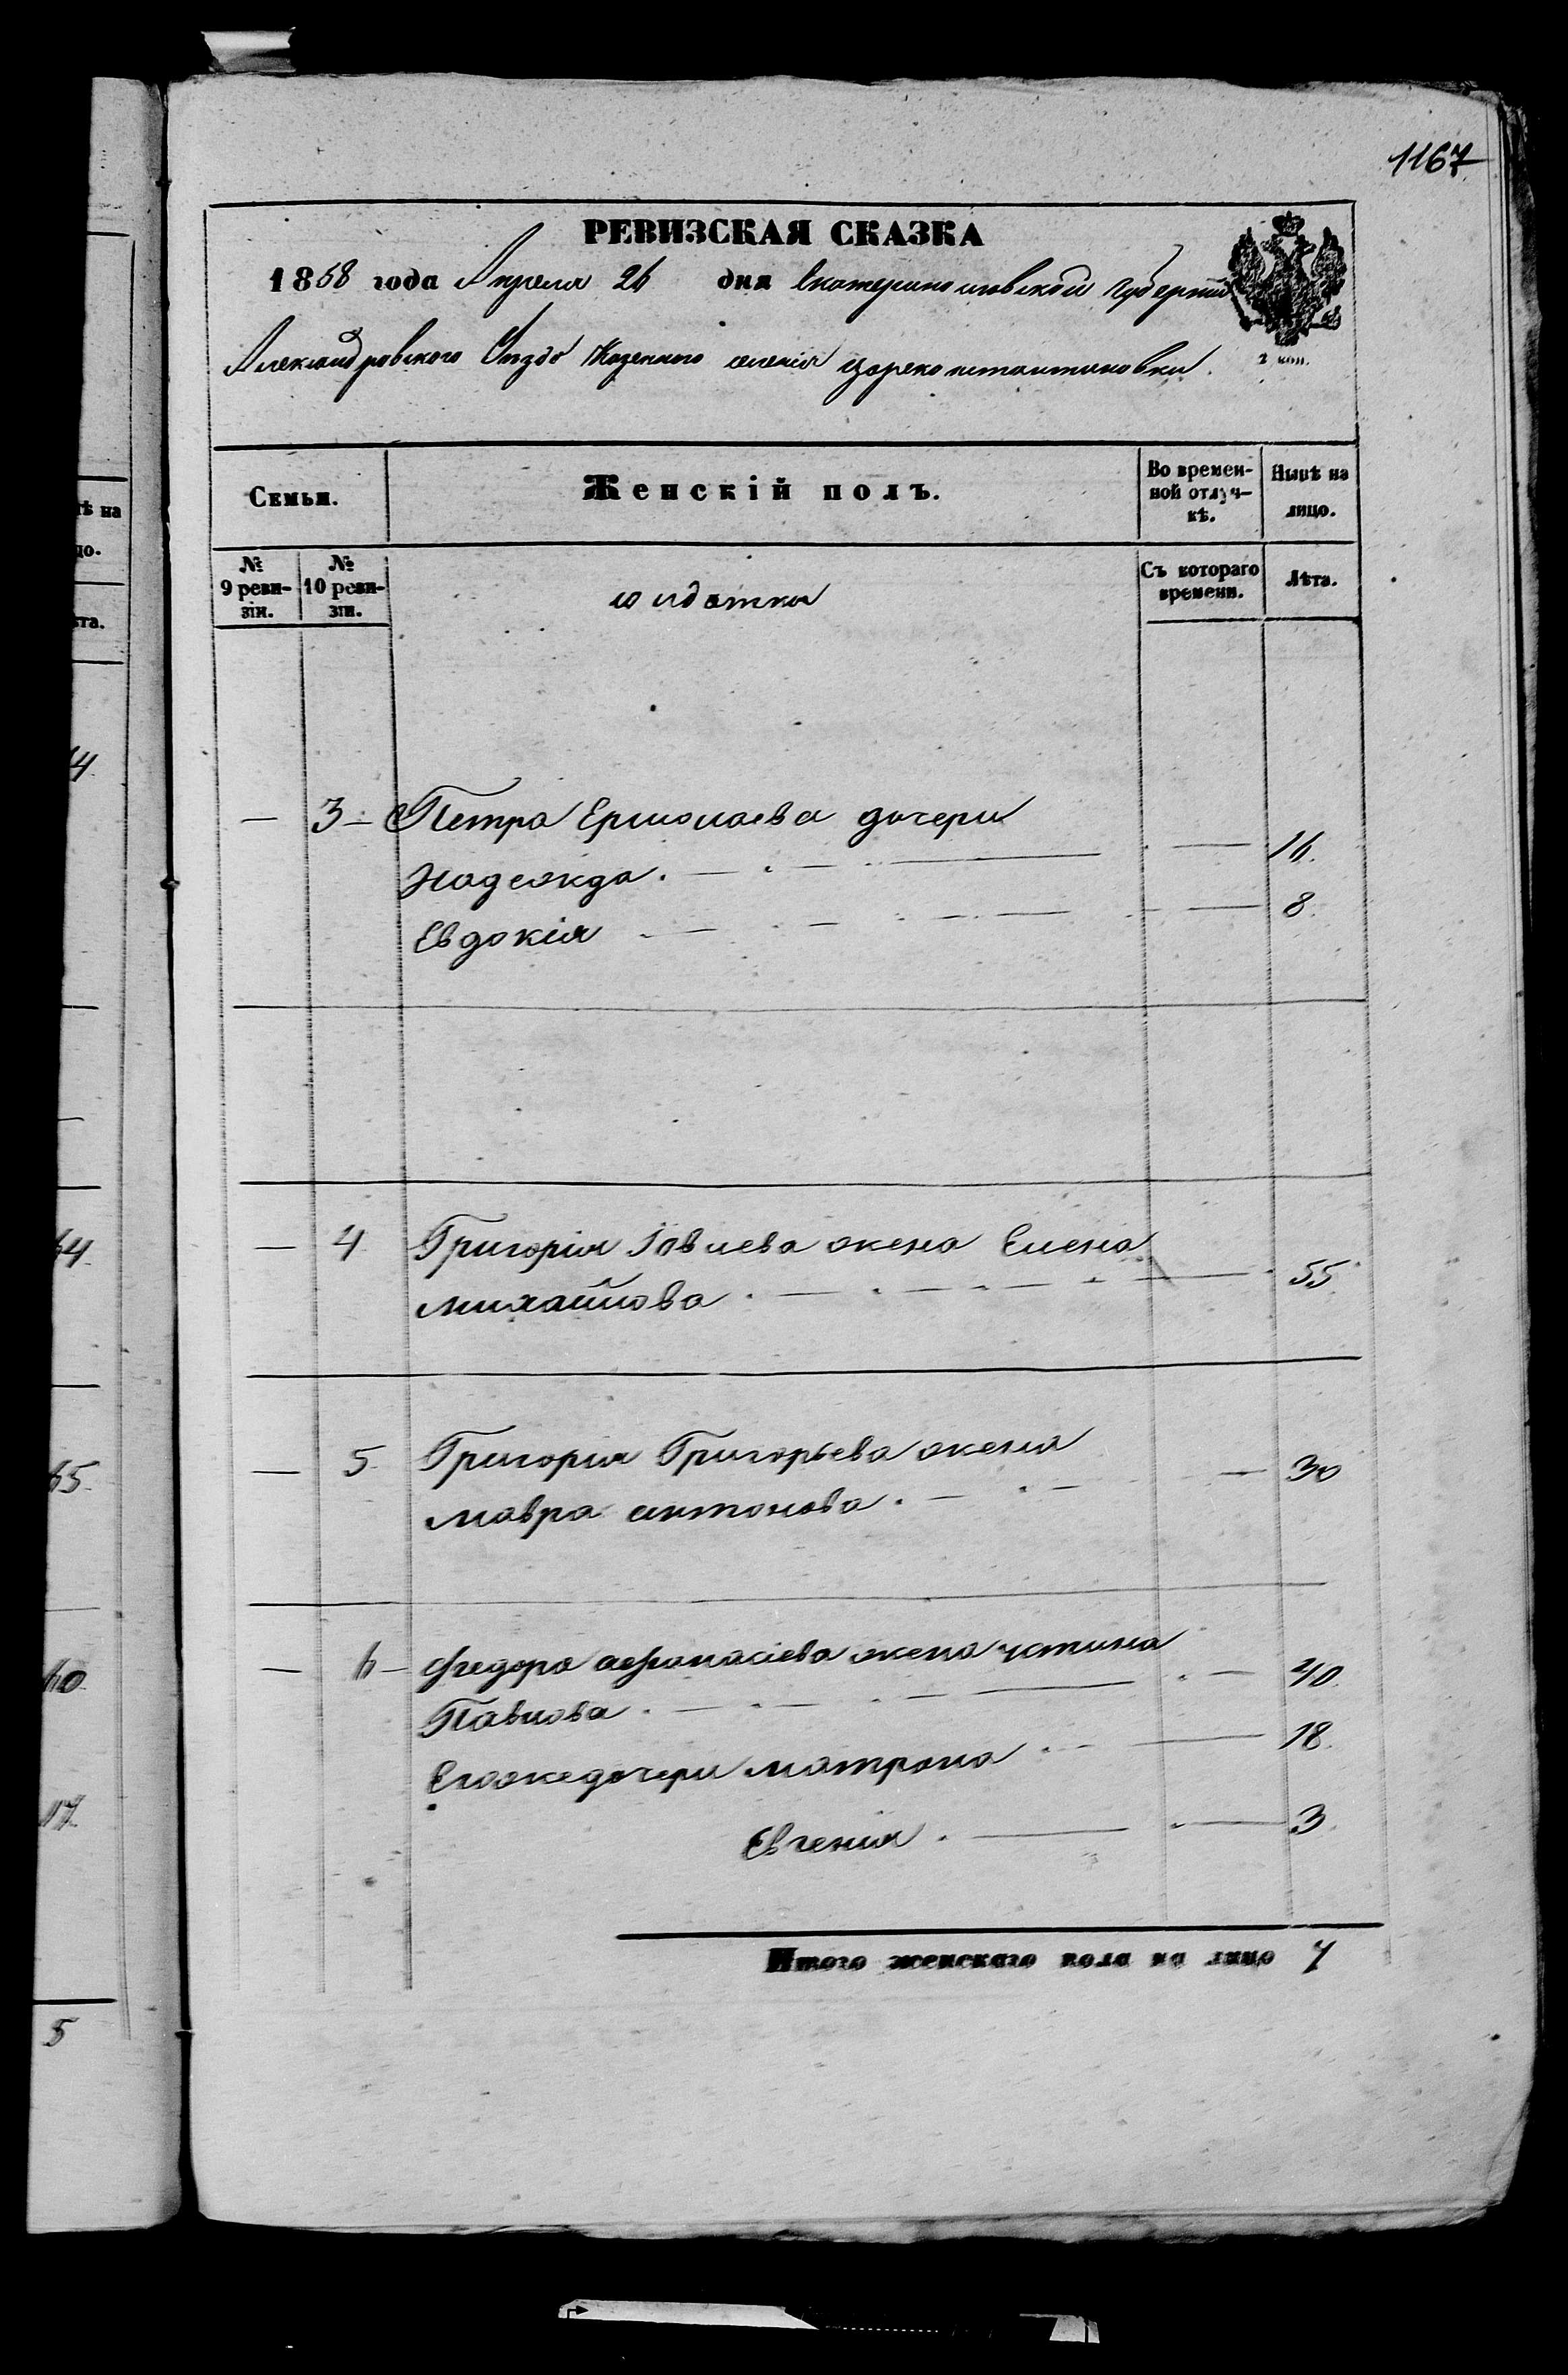 1167
РЕВИЗСКАЯ СКАЗКА
1858 года Апреля 26 дня Екатеринославской губернии
Александровского Уѣзда Казенного селенія Цареконстантиновки.
2 коп.
Семьи.
Женскій полъ.
Во времен-
ной отлуч-
кѣ.
Нынѣ на
лицо.
№
9 реви-
зіи.
№
10 реви-
зіи.
солдатки
Съ котораго
времени.
Лѣта.
— 3 — Петра Ермолаева дочери
Надежда . — . — — — 16.
Евдокія . — . — — — 8.
— 4 Григорія Іовлева жена Елена
михайлова . — . — . — 55.
— 5. Григорія Григорьева жена
мавра антонова . — . — — 30
— 6 — Федора афанасіева жена устина
Павлова . — . — . — — . — 40.
Егоже дочери матрона . — — 18.
Евгенія . — — 3.
Итого женскаго пола на лицо 7
ѣ на
цо.
ѣта.
64.
65.
60.
17.
5